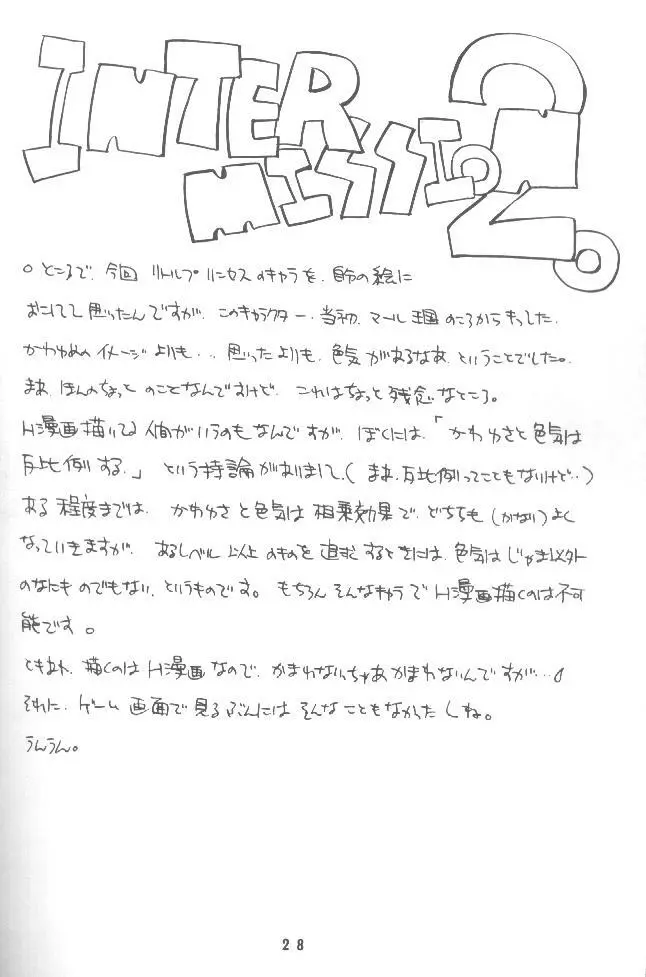 INTER
MISSION 2。
○ところで、今回 リトルプリンセスのキャラを、自分の絵に
おこしてて思ったんですが、このキャラクター、当初、マール王国のころからもってした、
かわゆめのイメージよりも‥、思ったよりも、色気があるなあ、ということでした。
まあ、ほんのちょっとのことなんですけど、これはちょっと残念なところ。
H漫画描いてる人間がいうのもなんですが、ぼくには、「かわゆさと色気は
反比例する。」という持論がありまして、(まあ、反比例ってこともないけど‥)
ある程度までは、かわゆさと色気は相乗効果で、どちらも(かなり)よく
なっていきますが、あるレベル以上のものを追求するときには、色気はじゃま以外
のなにものでもない、というものです。もちろんそんなキャラでH漫画描くのは不可
能です。
ともあれ、描くのはH漫画なので、かまわないっちゃあかまわないんですが…
それに、ゲーム画面で見るぶんにはそんなこともなかったしね。
うんうん。
28